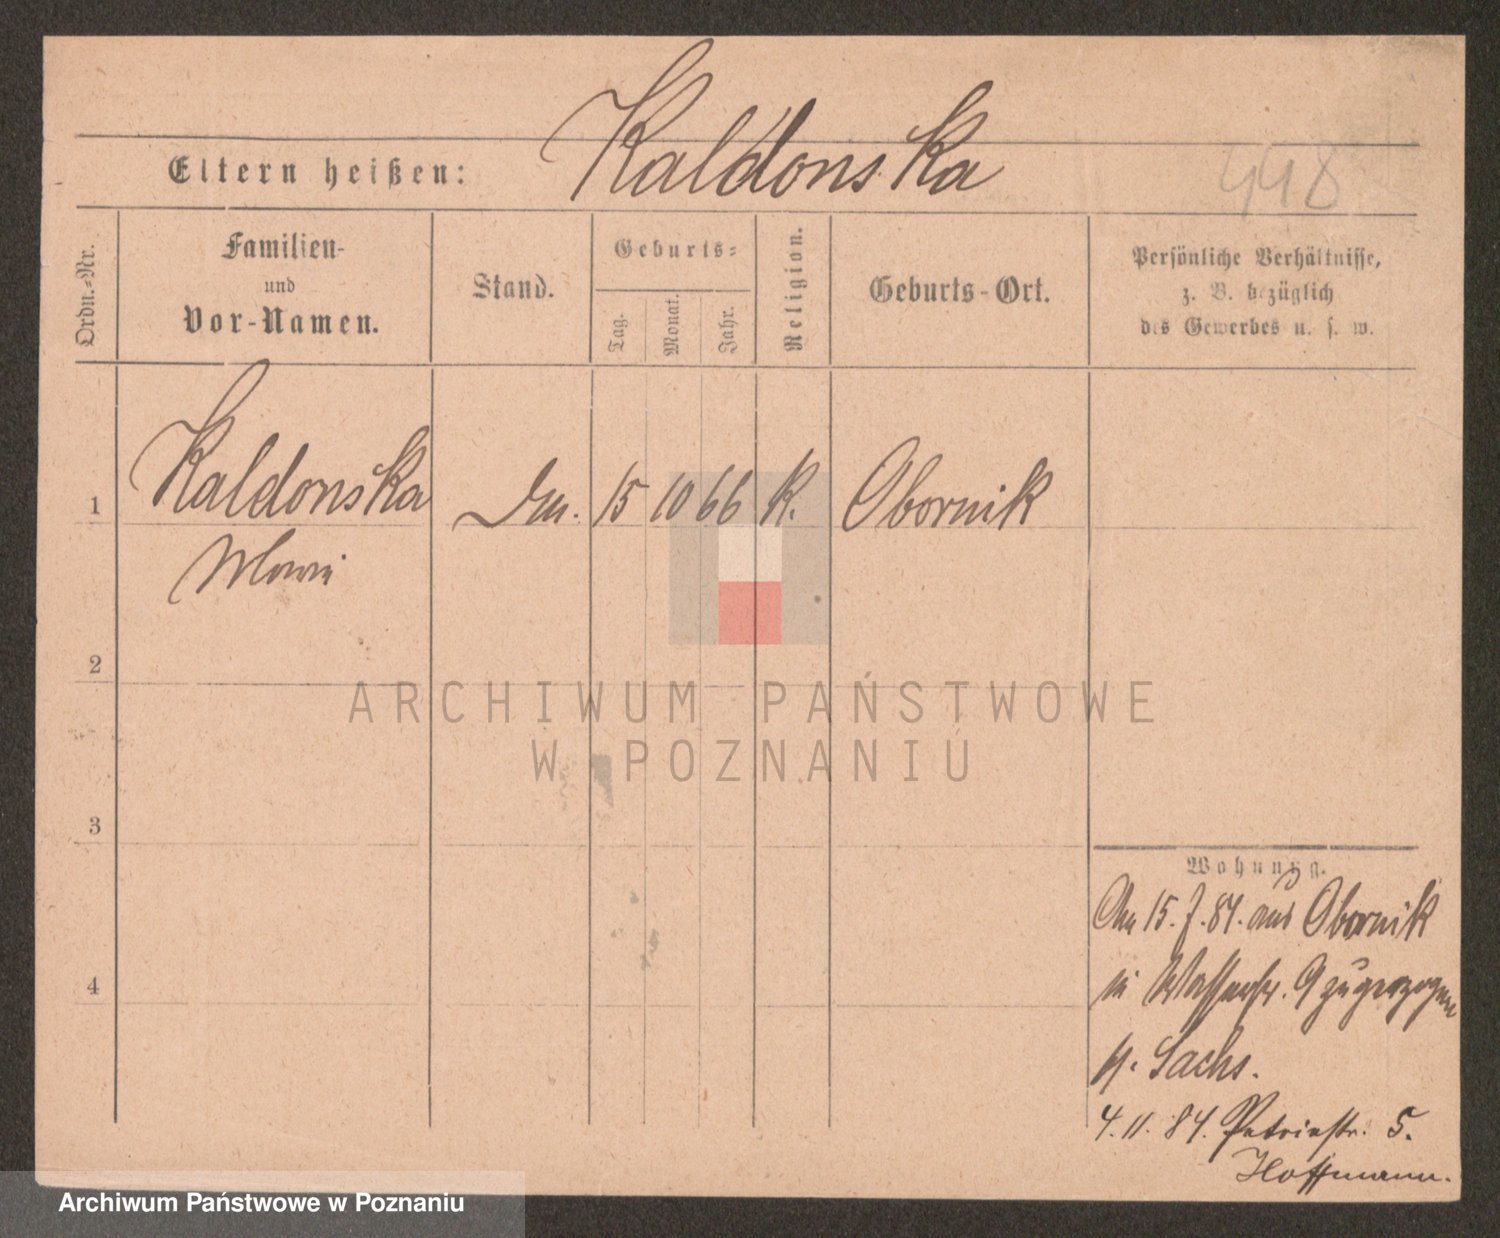 Kaldonska
448
Eltern heißen:
Ordn.-Nr.
Familien-
und
Vor-Namen.
Stand.
Geburts-
Tag.
Monat.
Jahr.
Religion.
Geburts-Ort.
Persönliche Verhältnisse,
z. B. bezüglich
des Gewerbes u. s. w.
1
Kaldonska
15 10 66 K. Obornik
2
ARCHIWUM PAŃSTWOWE
W POZNANIU
3
Wohnung.
Am 15. 7. 84. aus Obornik
in Wasserstr. 9 zugezogen
b. Sachs.
4
4. 11. 84. Petristr. 5.
Hoffmann.
Archiwum Państwowe w Poznaniu